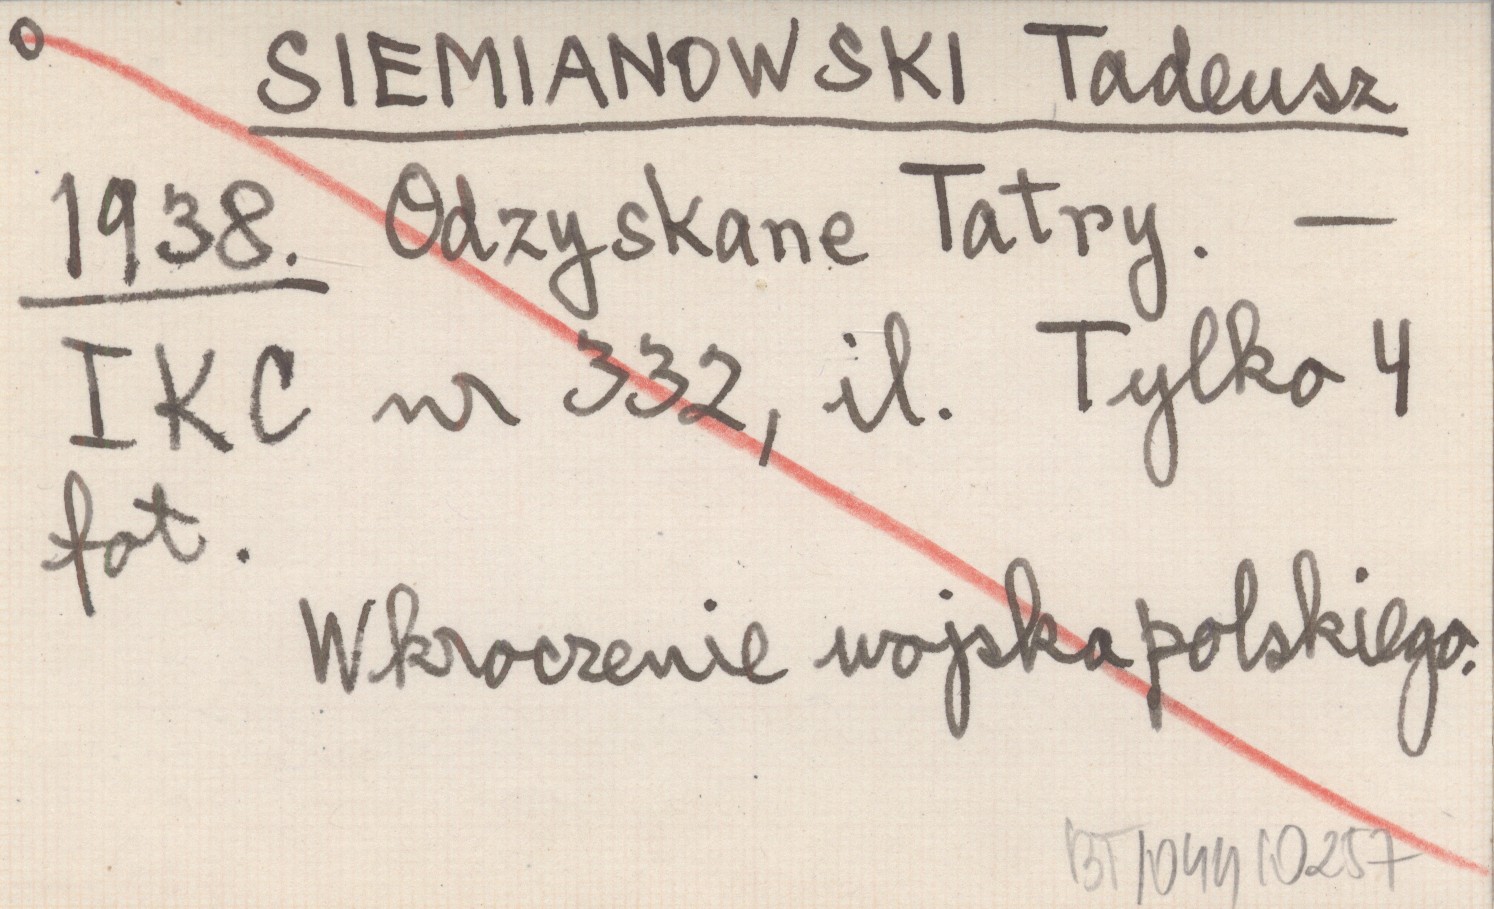 o SIEMIANOWSKI Tadeusz
1938. Odzyskane Tatry. —
IKC nr 332, il. Tylko 4
fot.
Wkroczenie wojska polskiego.
BT/044/0257